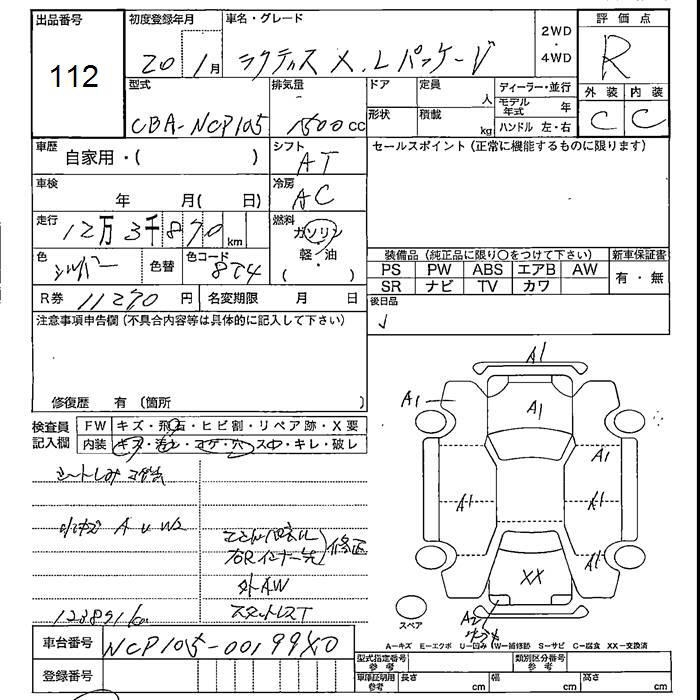 出品番号
112
初度登録年月
20 1月
車名・グレード
ラクティス X.Lパッケージ
2WD
・
4WD
評価点
R
外装 内装
C C
型式
CBA-NCP105
排気量
1500cc
ドア
定員
人
形状
積載
kg
ディーラー・並行
モデル年式 年
ハンドル 左・右
車歴
自家用・( )
シフト
AT
車検
年 月( 日)
冷房
AC
走行
12万3千870km
燃料
ガソリン
軽・油
( )
色
シルバー
色替
色コード
8T4
R券 11270 円
名変期限 月 日
セールスポイント(正常に機能するものに限ります)
装備品(純正品に限り○をつけて下さい)
新車保証書
PS PW ABS エアB AW
SR ナビ TV カワ
有・無
後日品
注意事項申告欄(不具合内容等は具体的に記入して下さい)
修復歴 有(箇所 )
検査員
記入欄
FW キズ・飛石・ヒビ割・リペア跡・X要
内装 キズ・汚レ・コゲ・穴・スレ・キレ・破レ
シートしみ コゲ穴
小キズ A U W2
修正
外AW
スタットレスT
123891km
A1
A1
A1
A1
A1
A1
A1
XX
A2
スペア
A-キズ E-エクボ U-凹み W-補修跡 S-サビ C-腐食 XX-交換済
車台番号
NCP105-0019940
登録番号
型式指定番号
参考
類別区分番号
参考
車庫証明用
参考
長さ cm
幅 cm
高さ cm